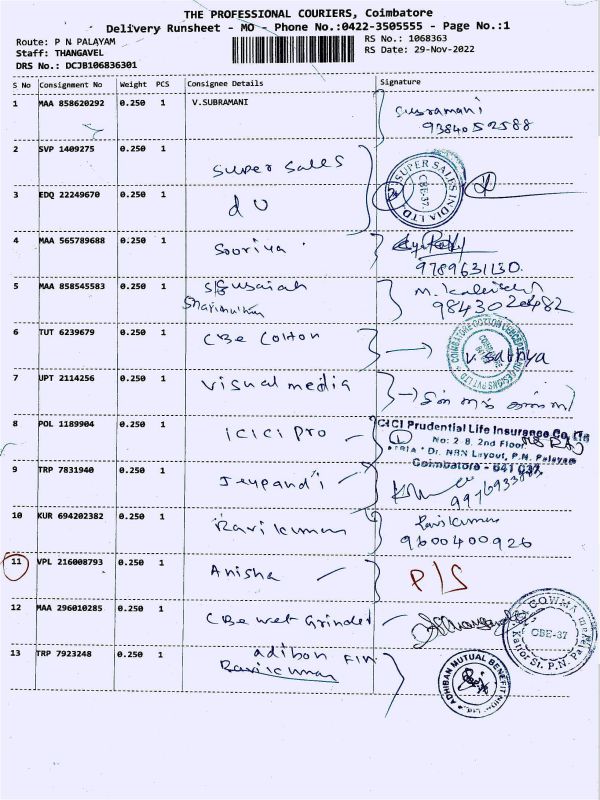 THE PROFESSIONAL COURIERS, Coimbatore
Delivery Runsheet - MO - Phone No.:0422-3505555 - Page No.:1
Route: P N PALAYAM
Staff: THANGAVEL
DRS No.: DCJB106836301
RS No.: 1068363
RS Date: 29-Nov-2022
S No Consignment No Weight PCS Consignee Details Signature
1 MAA 858620292 0.250 1 V.SUBRAMANI
Subramani
9384052588
2 SVP 1409275 0.250 1 Super Sales
SUPER SALES INDIA LTD. CBE-37
3 EDQ 22249670 0.250 1 d U
4 MAA 565789688 0.250 1 Sooriya
9789631130
5 MAA 858545583 0.250 1 Susaiah
6 TUT 6239679 0.250 1 CBe Cotton
V. Sathya
7 UPT 2114256 0.250 1 Visual media
8 POL 1189904 0.250 1 icici pro
ICICI Prudential Life Insurance Co. Ltd
No: 2-B, 2nd Floor
Dr. NRN Layout, P.N. Palayam
Coimbatore - 641 037
9 TRP 7831940 0.250 1 Jeypandi
10 KUR 694202382 0.250 1 Ravikumar
Ravikumar
9600400926
11 VPL 216008793 0.250 1 Anisha P/S
12 MAA 296010285 0.250 1 CBe Wet Grinder
COWMA CBE-37
13 TRP 7923248 0.250 1 adiban Fin
Ravikumar
ADHIBAN MUTUAL BENEFIT